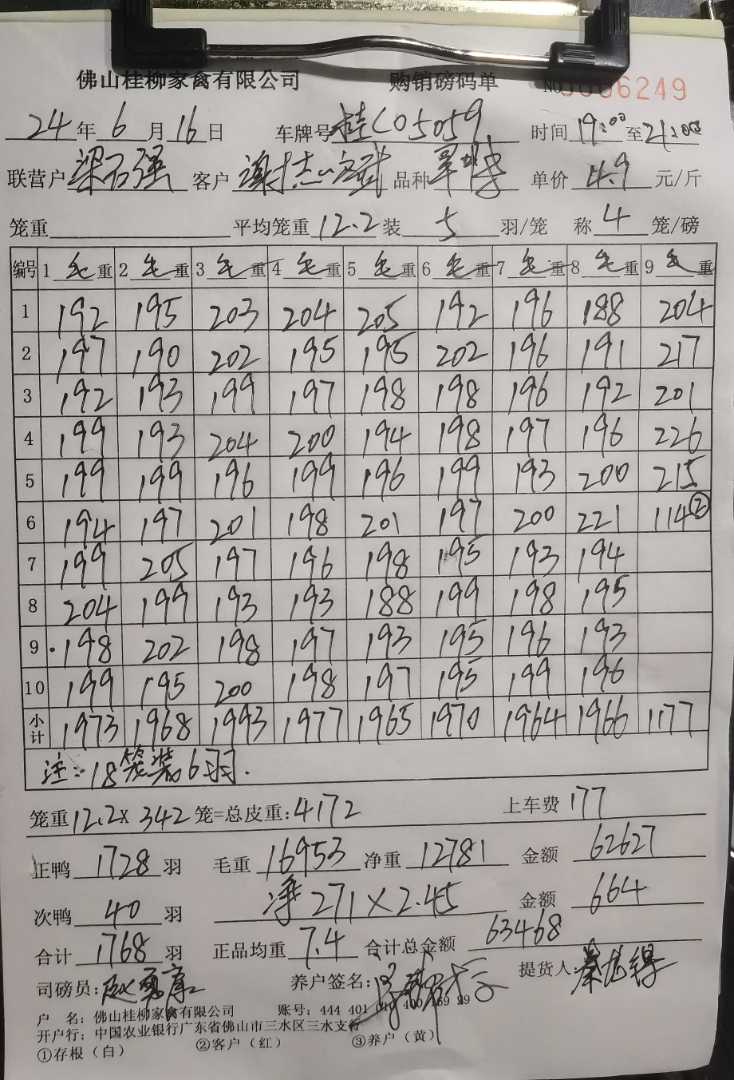 佛山桂柳家禽有限公司 购销磅码单 NO 0006249
24年6月16日 车牌号桂C05059 时间19:00至21:00
联营户梁石强 客户 品种 单价4.9元/斤
笼重 平均笼重12.2装5羽/笼 称4笼/磅
编号 1毛重 2毛重 3毛重 4毛重 5毛重 6毛重 7毛重 8毛重 9毛重
1 192 195 203 204 205 192 196 188 204
2 197 190 202 195 195 202 196 191 217
3 192 193 199 197 198 198 196 192 201
4 199 193 204 200 194 198 197 196 226
5 199 199 196 199 196 199 193 200 215
6 194 197 201 198 201 197 200 221 114②
7 199 205 197 196 198 195 193 194
8 204 199 193 193 188 199 198 195
9 198 202 198 197 193 195 196 193
10 199 195 200 198 197 195 199 196
小计 1973 1968 1993 1977 1965 1970 1964 1966 1177
注:18笼装6羽.
笼重12.2×342笼=总皮重:4172 上车费177
正鸭1728羽 毛重16953净重12781 金额62627
次鸭40羽 净271×2.45 金额664
合计1768羽 正品均重7.4 合计总金额63468
司磅员: 养户签名: 提货人
户 名:佛山桂柳家禽有限公司 账号:444 401
开户行:中国农业银行广东省佛山市三水区三水支行
①存根(白) ②客户(红) ③养户(黄)